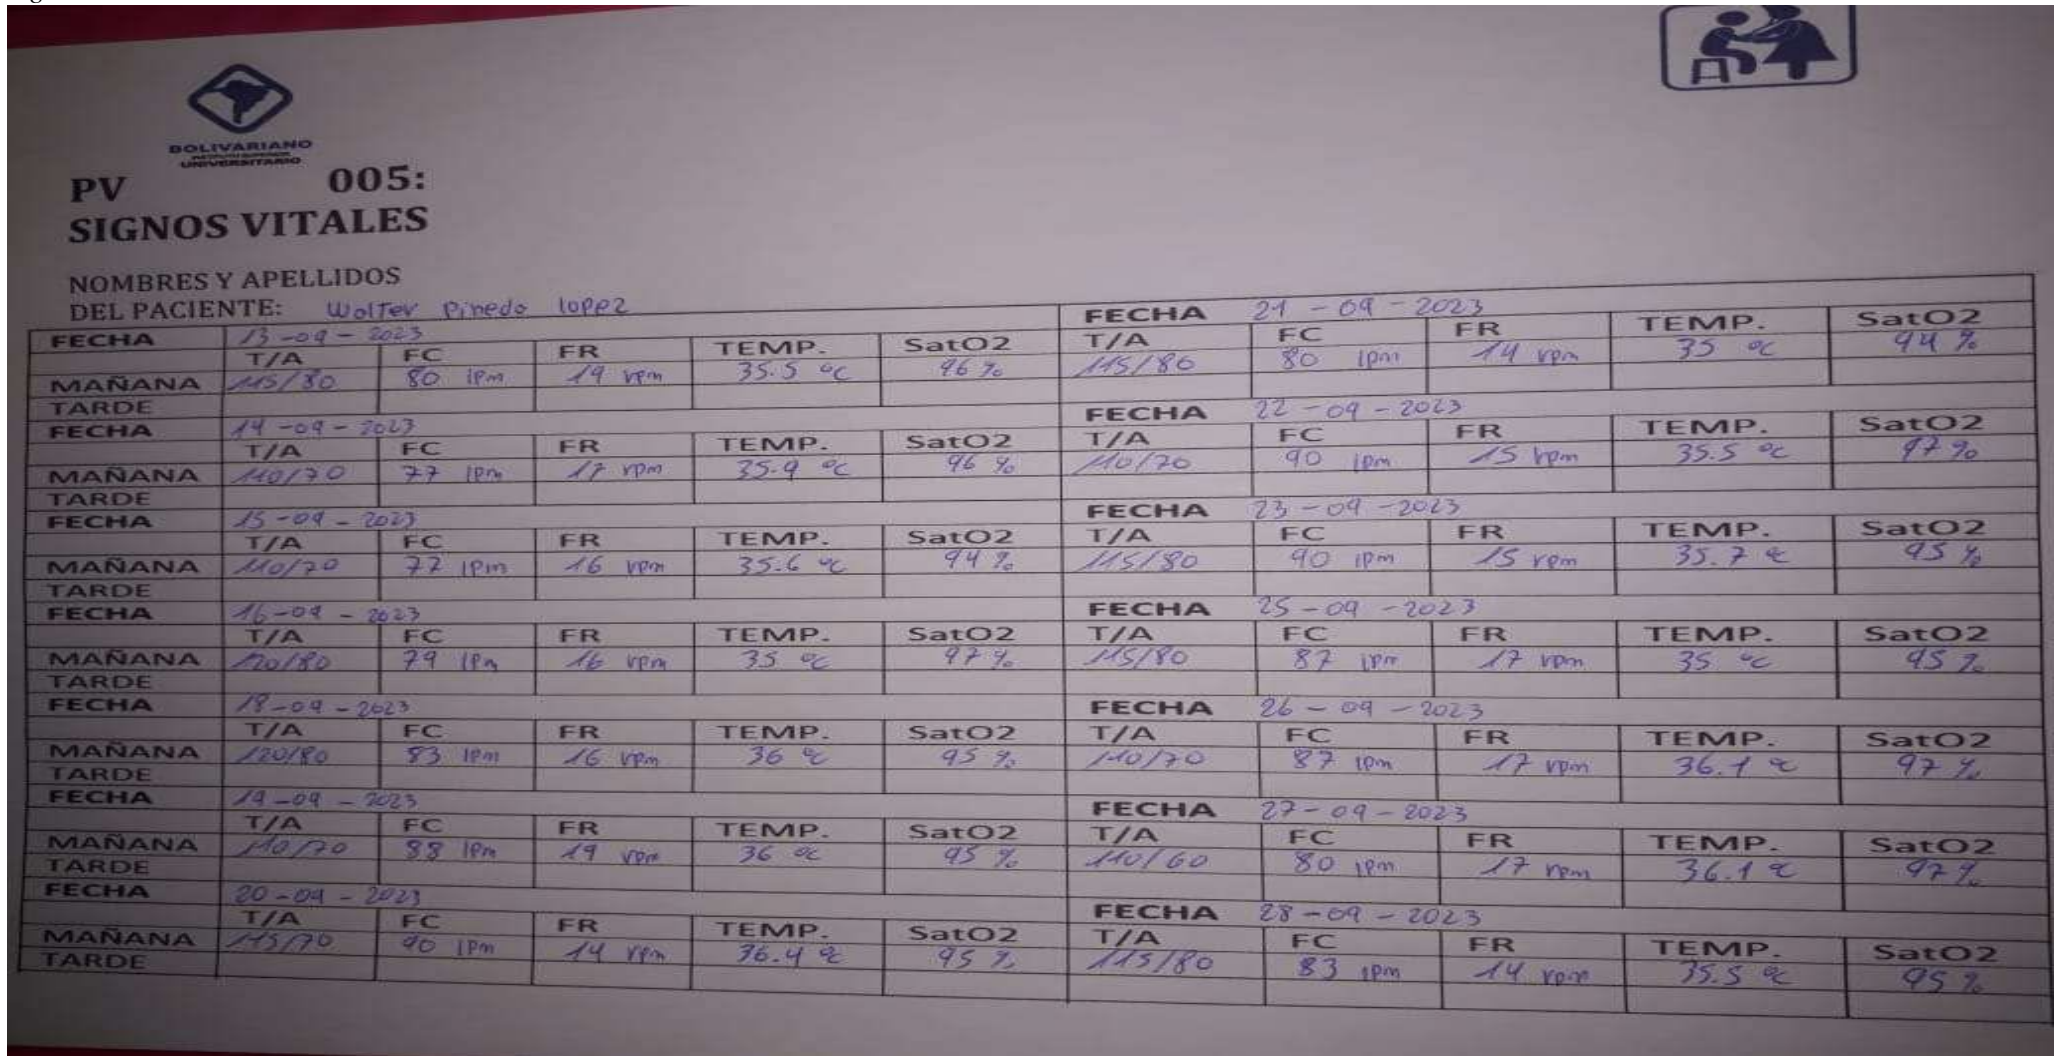 BOLIVARIANO
UNIVERSITARIO
PV 005:
SIGNOS VITALES
NOMBRES Y APELLIDOS
DEL PACIENTE: Wolter Pinedo lopez
FECHA 13-09-2023
T/A FC FR TEMP. SatO2
MAÑANA 115/80 80 lpm 19 rpm 35.5 °c 96 %
TARDE
FECHA 14-09-2023
T/A FC FR TEMP. SatO2
MAÑANA 110/70 77 lpm 17 rpm 35.9 °c 96 %
TARDE
FECHA 15-09-2023
T/A FC FR TEMP. SatO2
MAÑANA 110/70 77 lpm 16 rpm 35.6 °c 94 %
TARDE
FECHA 16-09-2023
T/A FC FR TEMP. SatO2
MAÑANA 120/80 79 lpm 16 rpm 35 °c 97 %
TARDE
FECHA 18-09-2023
T/A FC FR TEMP. SatO2
MAÑANA 120/80 83 lpm 16 rpm 36 °c 95 %
TARDE
FECHA 19-09-2023
T/A FC FR TEMP. SatO2
MAÑANA 110/70 88 lpm 19 rpm 36 °c 95 %
TARDE
FECHA 20-09-2023
T/A FC FR TEMP. SatO2
MAÑANA 115/70 90 lpm 14 rpm 36.4 °c 95 %
TARDE
FECHA 21-09-2023
T/A FC FR TEMP. SatO2
115/80 80 lpm 14 rpm 35 °c 94 %
FECHA 22-09-2023
T/A FC FR TEMP. SatO2
110/70 90 lpm 15 rpm 35.5 °c 97 %
FECHA 23-09-2023
T/A FC FR TEMP. SatO2
115/80 90 lpm 15 rpm 35.7 °c 95 %
FECHA 25-09-2023
T/A FC FR TEMP. SatO2
115/80 87 lpm 17 rpm 35 °c 95 %
FECHA 26-09-2023
T/A FC FR TEMP. SatO2
110/70 87 lpm 17 rpm 36.1 °c 97 %
FECHA 27-09-2023
T/A FC FR TEMP. SatO2
110/60 80 lpm 17 rpm 36.1 °c 97 %
FECHA 28-09-2023
T/A FC FR TEMP. SatO2
115/80 83 lpm 14 rpm 35.5 °c 95 %